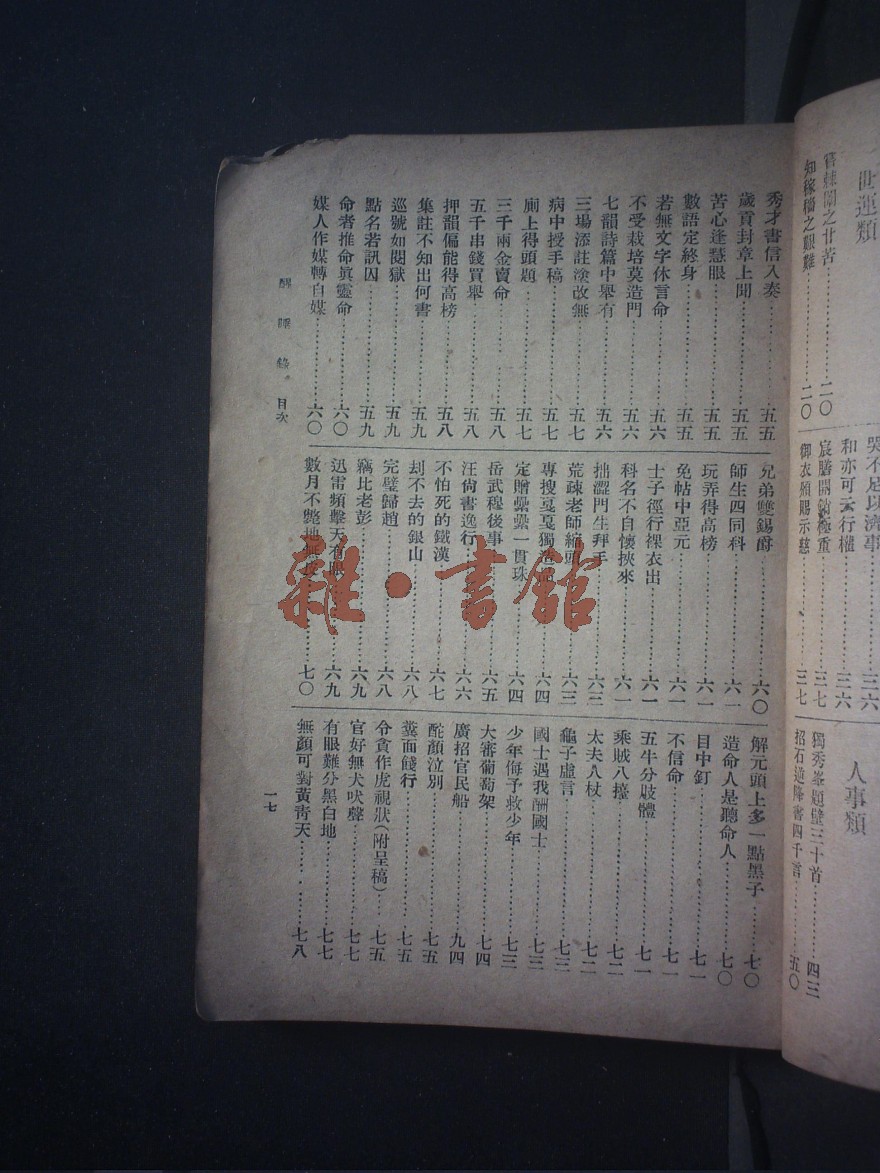 世運類
嘗棘闈之甘苦……二〇
知稼穡之艱難……二〇
哭不足以濟事……三六
和亦可云行權……三六
宸膳開銷極重……三七
御衣頒賜示慈……三七
人事類
獨秀峯題壁三十首……四三
招石逆降書四千言……五〇
秀才書信入奏……五五
歲貢封章上聞……五五
苦心逢慧眼……五五
數語定終身……五五
若無文字休言命……五六
不受栽培莫造門……五六
七韻詩篇中舉有……五六
三場添註塗改無……五七
病中授手稿……五七
廁上得頭題……五七
三千兩金賣命……五八
五千串錢買舉……五八
押韻偏能得高榜……五八
集註不知出何書……五九
巡號如閱獄……五九
點名若訊囚……五九
命者推命眞靈命……六〇
媒人作媒轉自媒……六〇
兄弟雙錫爵……六〇
師生四同科……六一
玩弄得高榜……六一
免帖中亞元……六一
士子徑行裸衣出……六一
科名不自懷挾來……六一
拙澀門生拜手……六三
荒疎老師縮頭……六三
專搜戛戛獨造……六四
定贈纍纍一貫珠……六四
岳武穆後事……六五
汪尙書逸行……六六
不怕死的鐵漢……六七
刦不去的銀山……六八
完璧歸趙……六八
竊比老彭……六九
迅雷頻擊天有眼……六九
數月不斃地無皮……七〇
解元頭上多一點黑子……七〇
造命人是聽命人……七〇
目中釘……七一
不信命……七一
五牛分歧體……七一
乘賊八擡……七二
太夫人杖……七二
龜子虛言……七三
國士遇我酬國士……七三
少年侮予救少年……七三
大審葡萄架……七四
廣招官民船……九四
酡顏泣別……七五
糞面餞行……七五
令貪作虎視狀(附呈稿)……七五
官好無犬吠聲……七七
有眼難分黑白地……七七
無顏可對黃靑天……七八
目次
一七
雜·書館